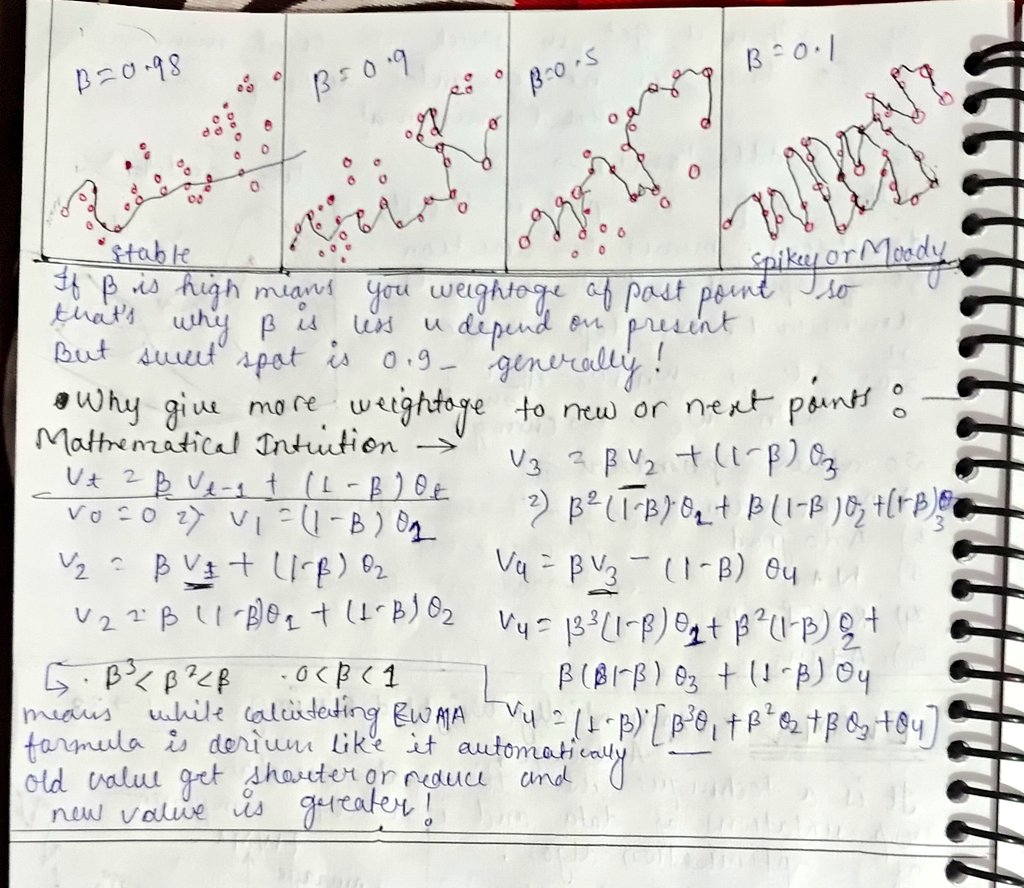 β=0.98
β=0.9
β=0.5
β=0.1
stable
spikey or Moody
If β is high means you weightage of past point so
that's why β is less u depend on present
But sweet spot is 0.9 - generally!
• Why give more weightage to new or next points :-
Mathematical Intuition →
Vt = β Vt-1 + (1-β)θt
V0=0 => V1 = (1-β)θ1
V2 = βV1 + (1-β)θ2
V2 = β(1-β)θ1 + (1-β)θ2
V3 = βV2 + (1-β)θ3
=> β²(1-β)·θ1 + β(1-β)θ2 + (1-β)θ3
V4 = βV3 - (1-β)θ4
V4 = β³(1-β)θ1 + β²(1-β)θ2 +
β(1-β)θ3 + (1-β)θ4
V4 = (1-β)·[β³θ1 + β²θ2 + βθ3 + θ4]
↳ · β³<β²<β · 0<β<1
means while calculating EWMA
formula is like it automatically
old value get shorter or reduce and
new value is greater!